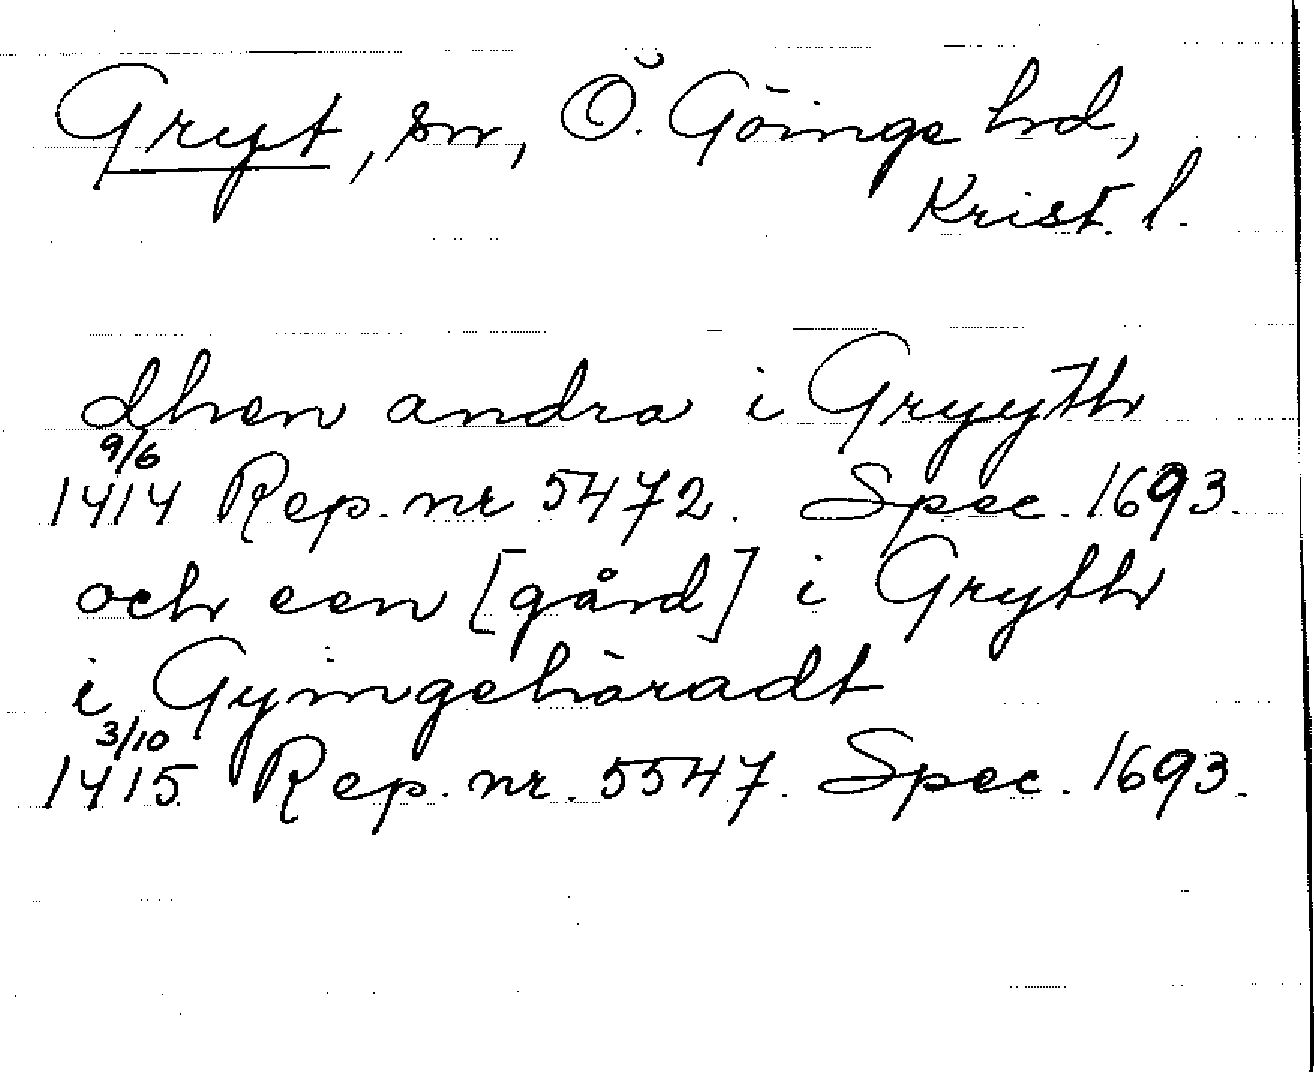 Gryt, sn, Ö. Göinge hd,
Krist. l.
dhen andra i Gryyth
9/6
1414 Rep. nr 5472. Spec. 1693.
och een [gård] i Gryth
i Gyingehäradt
3/10
1415 Rep. nr. 5547. Spec. 1693.